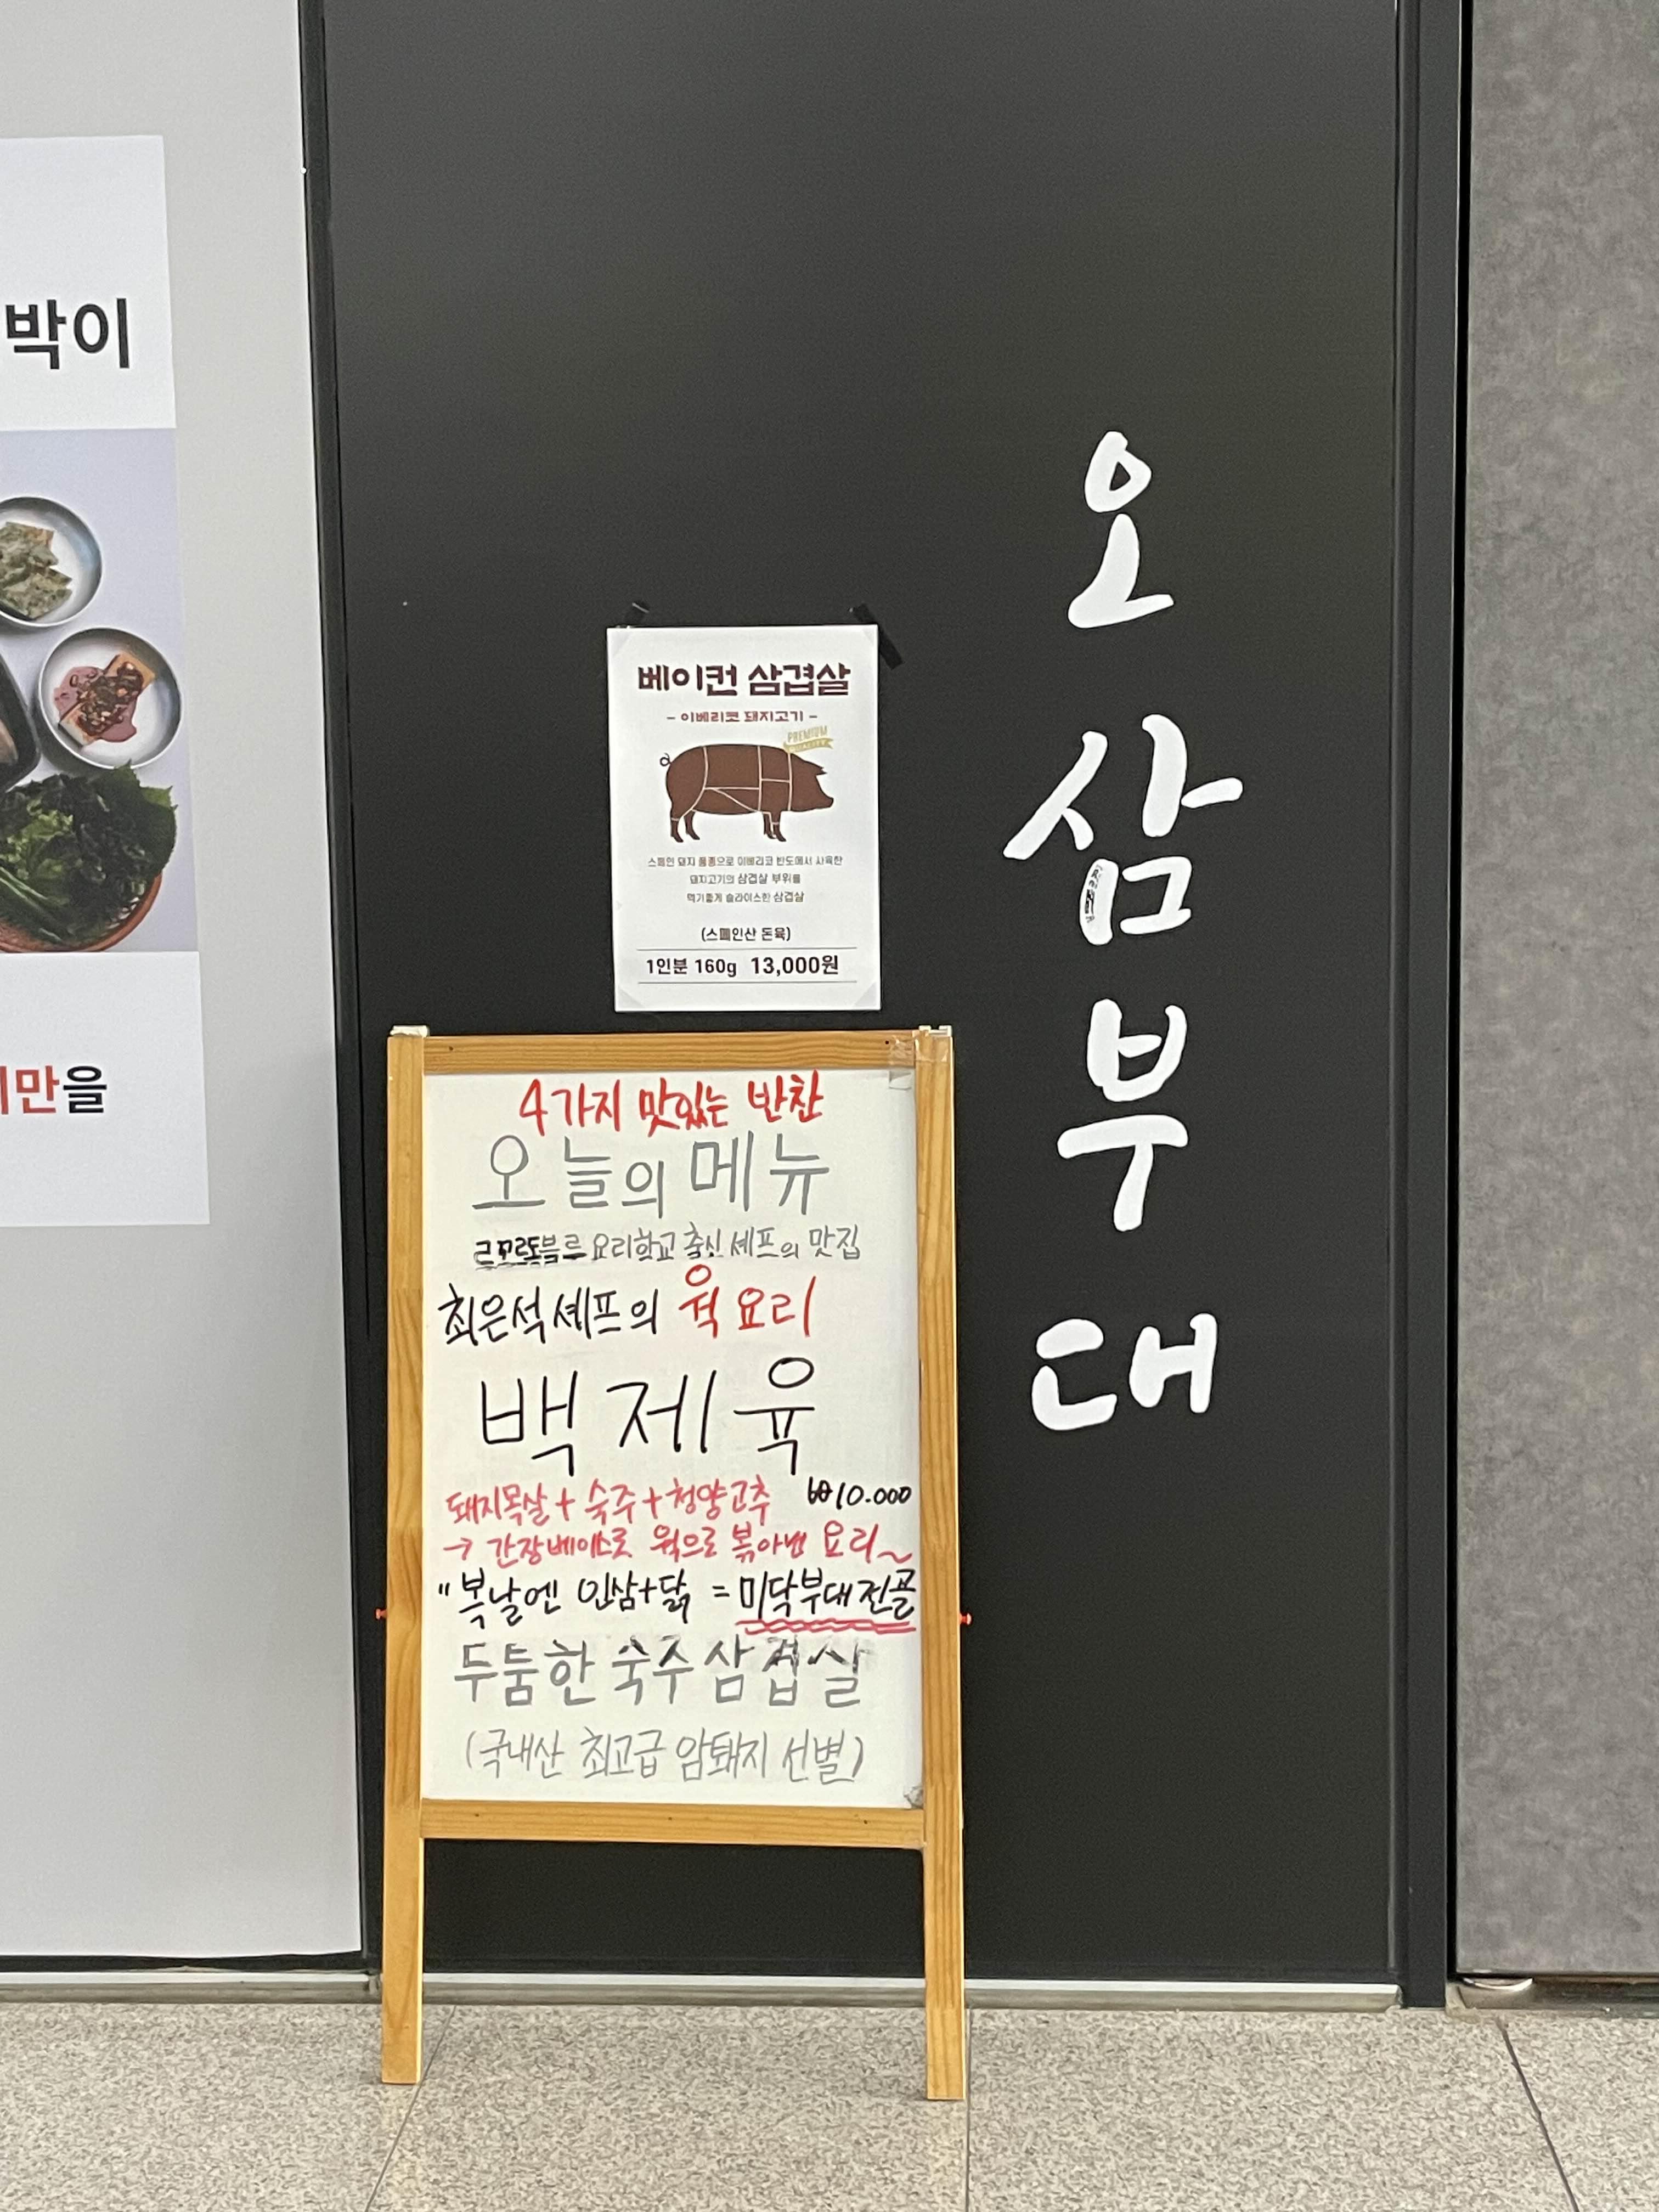 박이
만을
오
삼
부
대
베이컨 삼겹살
- 이베리코 돼지고기 -
PREMIUM
QUALITY
스페인 돼지 품종으로 이베리코 반도에서 사육한
돼지고기의 삼겹살 부위를
먹기좋게 슬라이스한 삼겹살
(스페인산 돈육)
1인분 160g 13,000원
4가지 맛있는 반찬
오늘의 메뉴
르꼬르동블루 요리학교 출신 셰프의 맛집
최은석 셰프의 웍 요리
백제육
돼지목살 + 숙주 + 청양고추 ₩10.000
→ 간장베이스로 웍으로 볶아낸 요리~
"복날엔 인삼+닭 = 미닥부대전골
두툼한 숙주삼겹살
(국내산 최고급 암퇘지 선별)